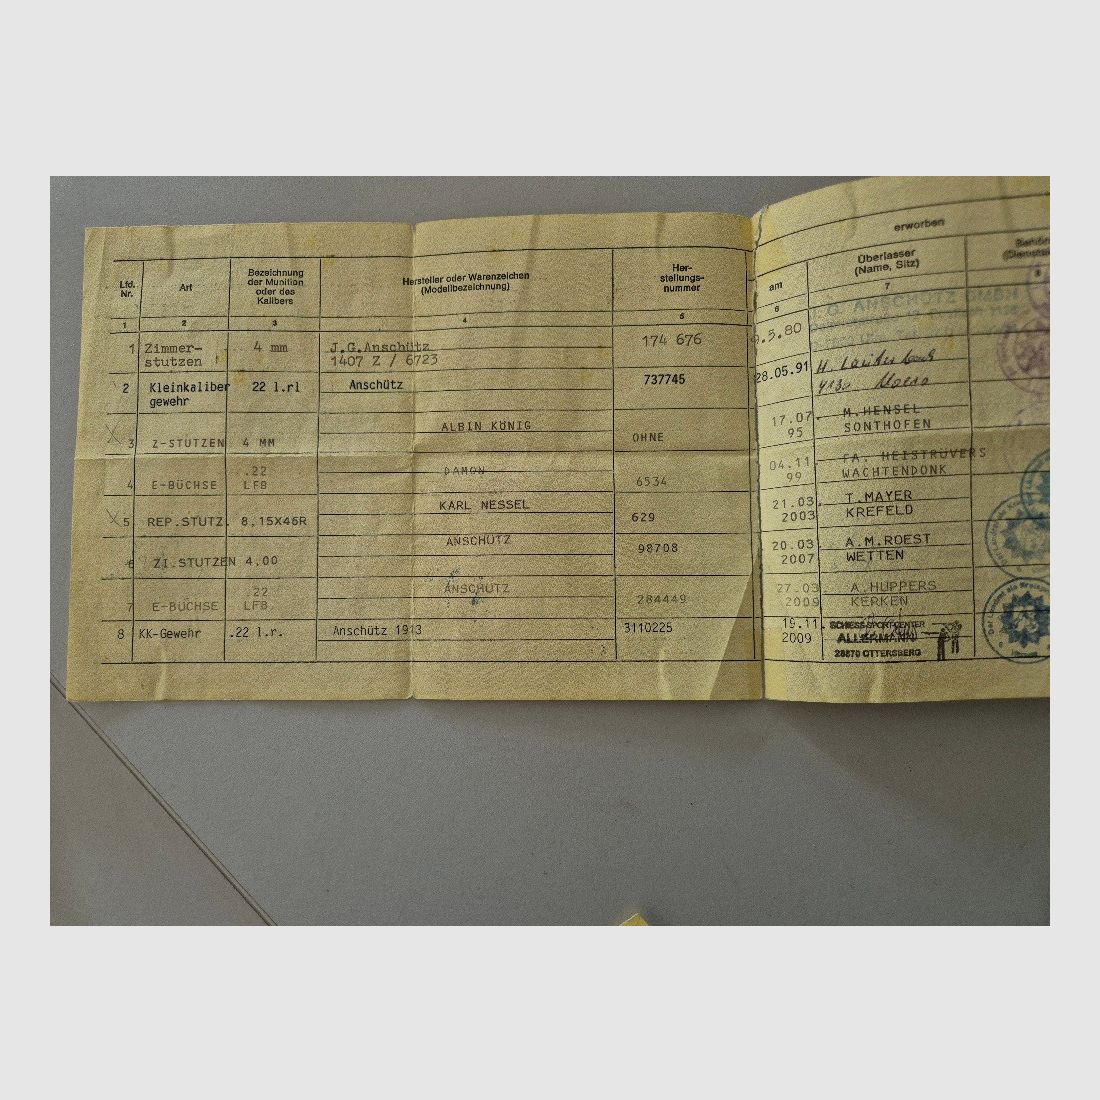 erworben
Lfd. Nr. Art Bezeichnung der Munition oder des Kalibers Hersteller oder Warenzeichen (Modellbezeichnung) Her-stellungs-nummer am Überlasser (Name, Sitz)
1 2 3 4 5 6 7 8
1 Zimmer- 4 mm J.G.Anschütz 174 676 .5.80 J.G. ANSCHÜTZ GMBH
stutzen 1407 Z / 6723
2 Kleinkaliber 22 l.rl Anschütz 737745 28.05.91 H.
gewehr
ALBIN KÖNIG 17.07. M.HENSEL
3 Z-STUTZEN 4 MM OHNE 95 SONTHOFEN
.22 DAMON 04.11. FA. HEISTRÜVERS
4 E-BÜCHSE LFB 6534 99 WACHTENDONK
KARL NESSEL 21.03. T.MAYER
5 REP.STUTZ. 8,15X46R 629 2003 KREFELD
ANSCHÜTZ 20.03. A.M.ROEST
6 ZI.STUTZEN 4,00 98708 2007 WETTEN
.22 ANSCHÜTZ 27.03. A.HÜPPERS
7 E-BÜCHSE LFB 284449 2009 KERKEN
8 KK-Gewehr .22 l.r. Anschütz 1913 3110225 19.11. SCHIESS-SPORT-CENTER
2009 ALLERMANN
28870 OTTERSBERG